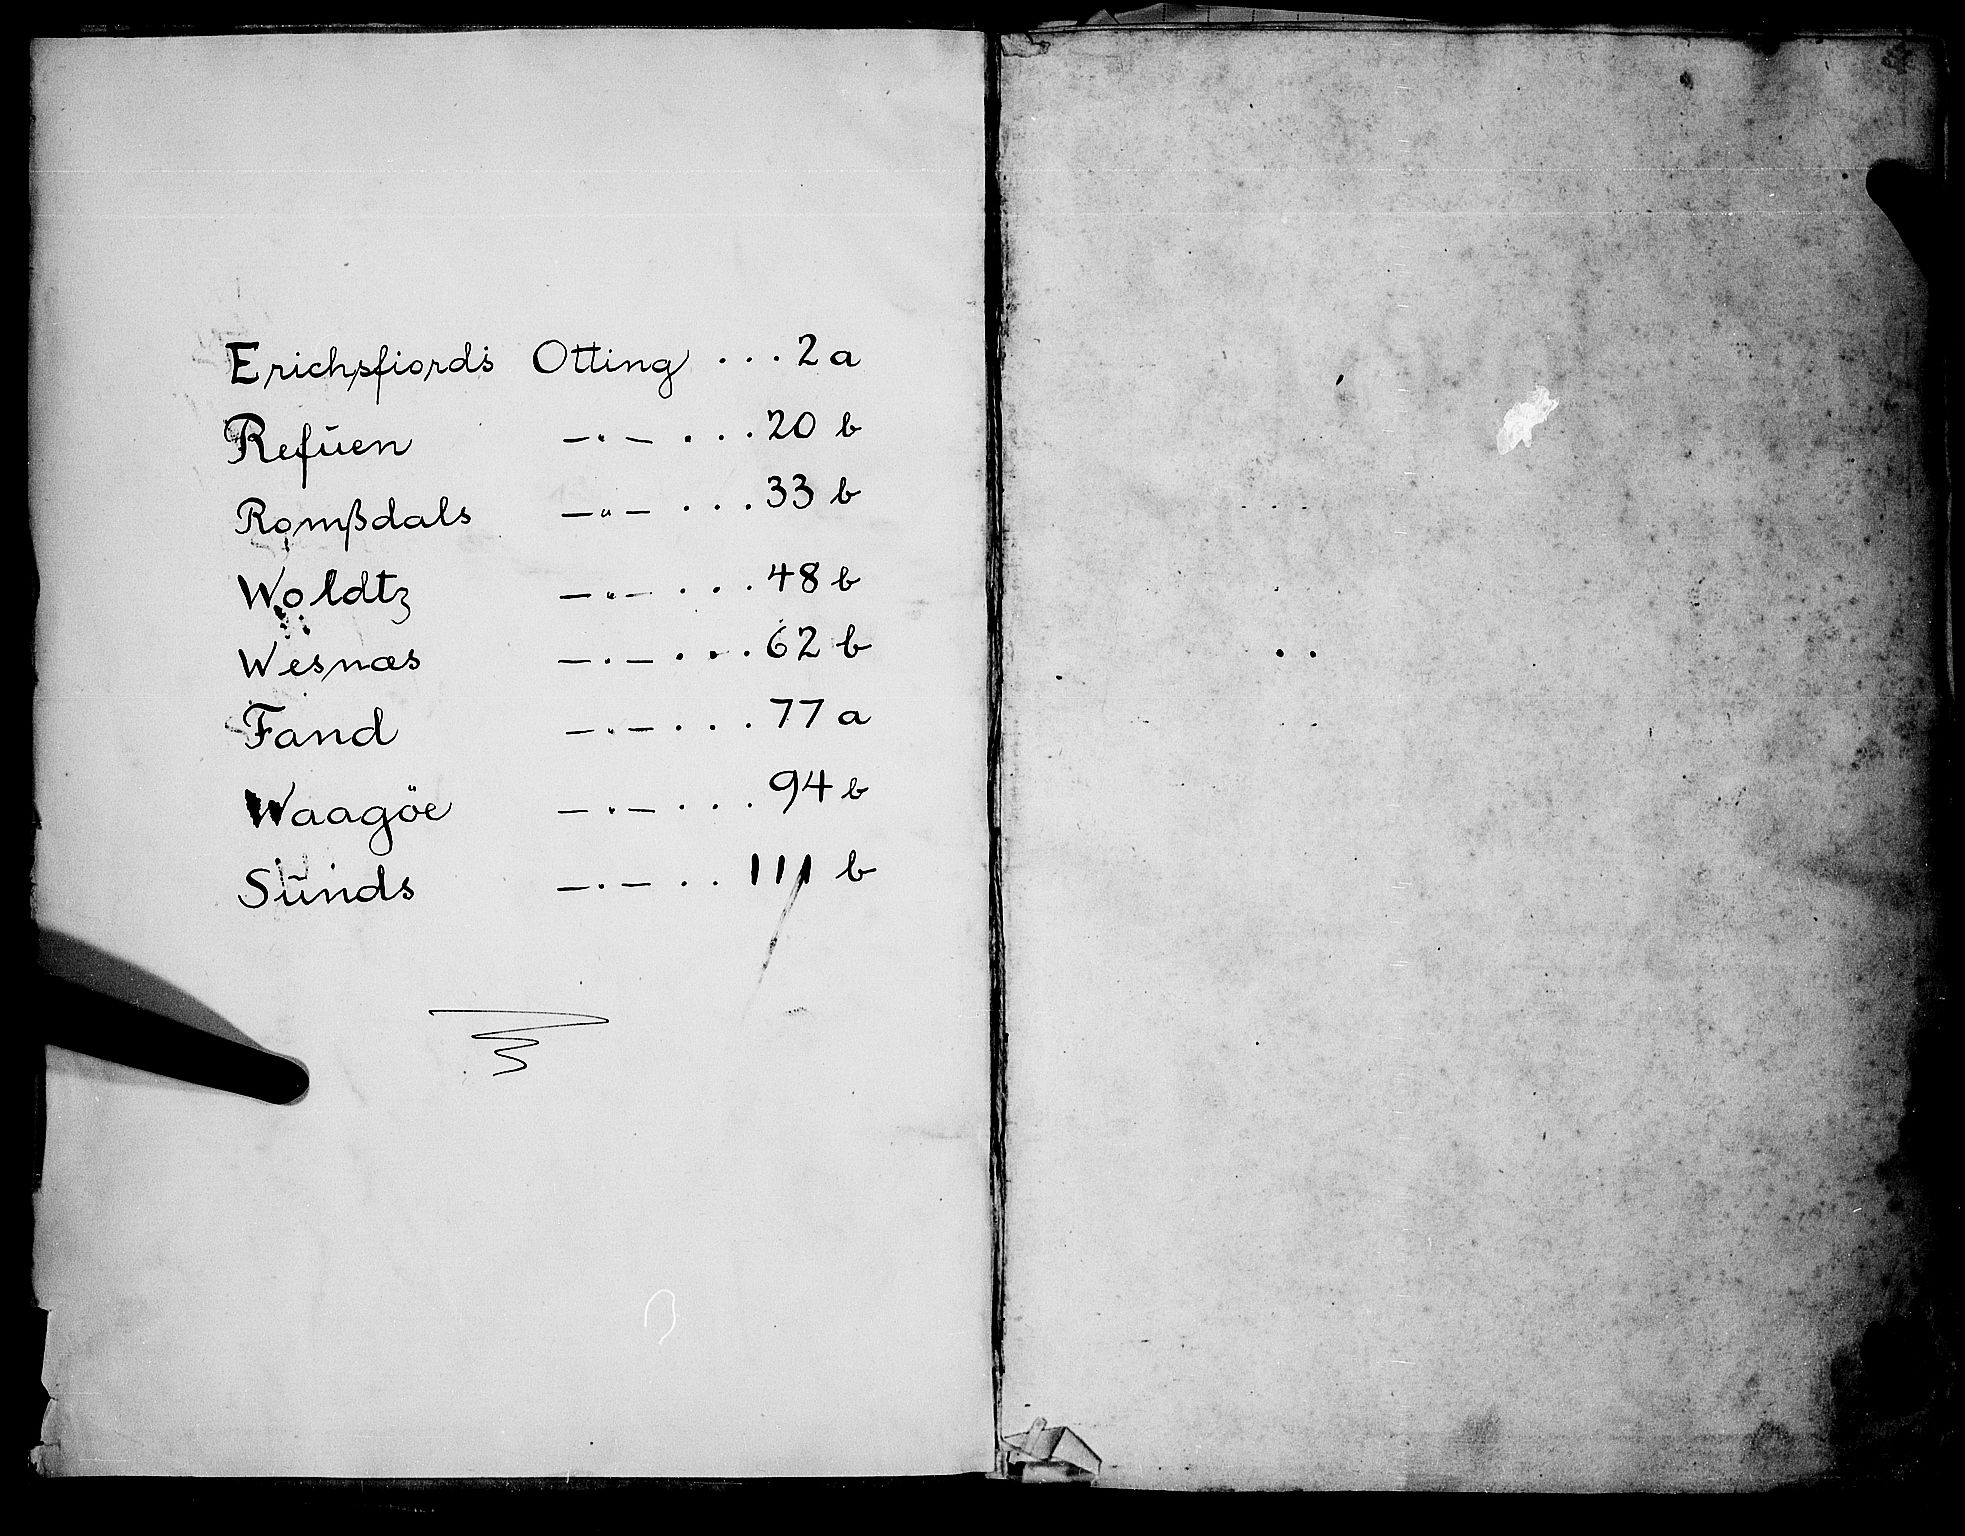 Erichsfiords Otting ... 2 a
Refŭen —"— ... 20 b
Romßdals —"— ... 33 b
Woldtz —"— ... 48 b
Wesnæs —"— ... 62 b
Fand —"— ... 77 a
Waagöe —"— ... 94 b
Sŭnds —"— .. 111 b